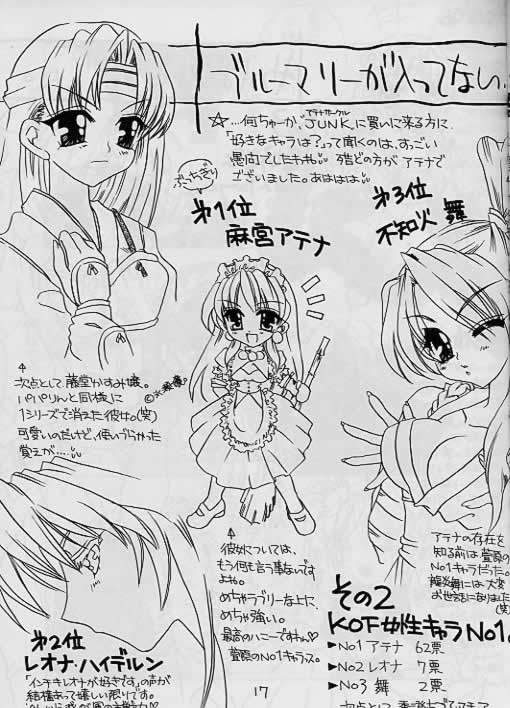 ブルーマリーが入ってない…
☆…何ちゅーか、JUNK.に買いに来る方に、
「好きなキャラは？」って聞くのは、すっごい
愚問でしたねㇸ 殆どの方がアテナで
ございました。あははは
ぶっちぎり
第1位
麻宮アテナ
第3位
不知火 舞
次点として、藤堂かすみ嬢。
1シリーズで消えた彼女。(笑)
可愛いのだけど、使いづらかった
覚えが…
彼女については、
もう何も言う事ないです
よね。
めちゃラブリーな上に、
めちゃ強い。
最高のハニーですねん♡
萱原のNo1キャラっス。
アテナの存在を
知る前は萱原の
No1キャラだった。
龍炎舞には大変
お世話になりました
(笑)
その2
KOF女性キャラNo1。
▶No1 アテナ 62票
▶No2 レオナ 7票
▶No3 舞 2票
第2位
レオナ・ハイデルン
「インチキレオナが好きです。」の声が
結構あって嬉しい限りです。
17